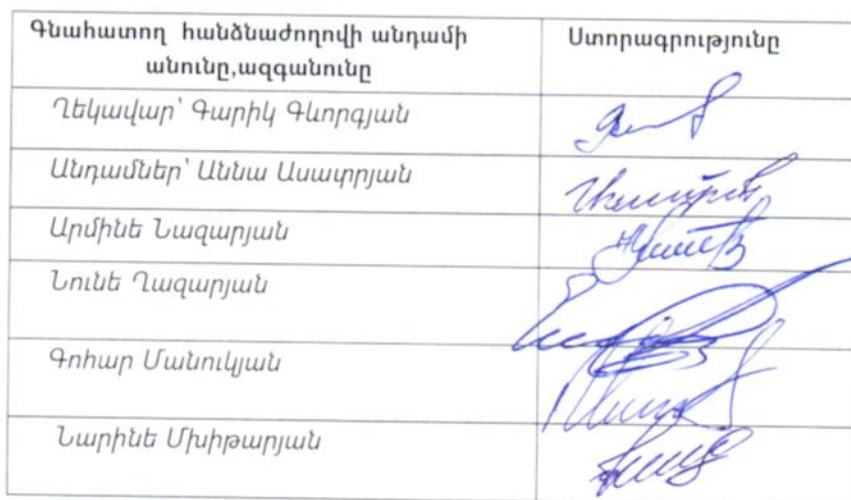 Գնահատող հանձնաժողովի անդամի
անունը,ազգանունը
Ստորագրությունը
Ղեկավար՝ Գարիկ Գևորգյան
Անդամներ՝ Աննա Ասատրյան
Արմինե Նազարյան
Նունե Ղազարյան
Գոհար Մանուկյան
Նարինե Մխիթարյան